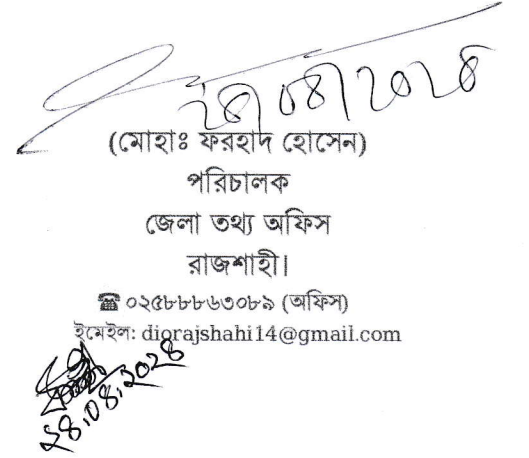 ২৪/০৪/২০২৪
(মোহাঃ ফরহাদ হোসেন)
পরিচালক
জেলা তথ্য অফিস
রাজশাহী।
☎ ০২৫৮৮৮৬৩০৮৯ (অফিস)
ইমেইল: diorajshahi14@gmail.com
২৪.০৪.২০২৪